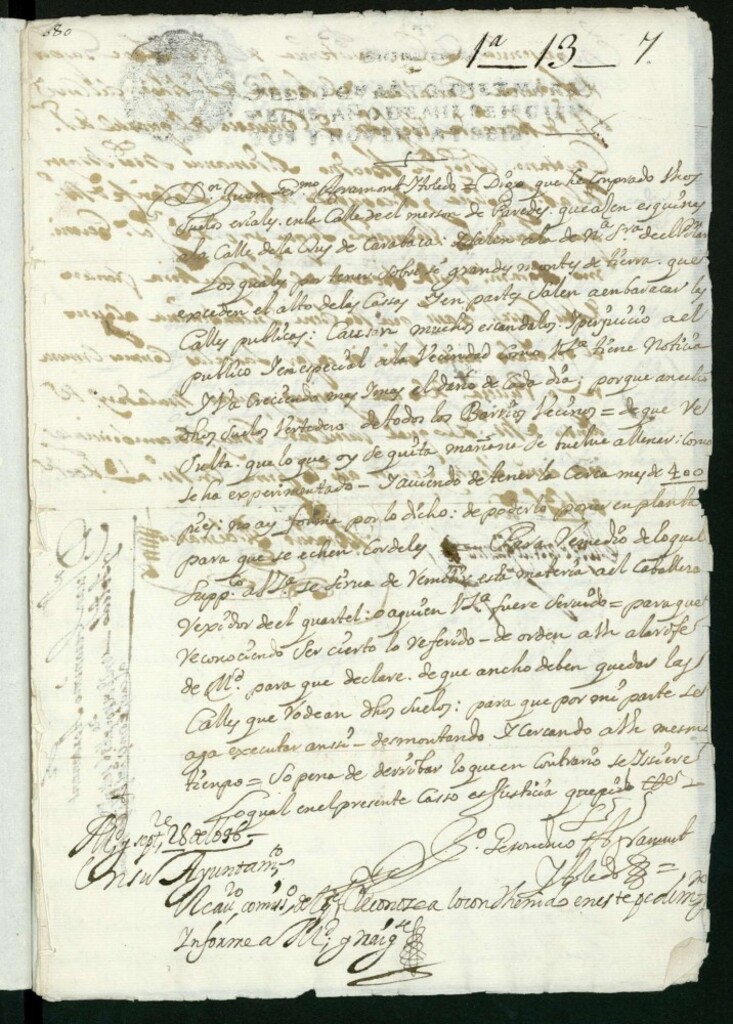 680
1ª 13 7
Dn Juan Germo Agramont Itoledo = Digo que he Comprado Unos
suelos eriales. en la Calle de el meson de Paredes. que acen esquina
a la Calle de la Crus de Carabaca: I salen a la de Nª Srª de el Pilar
Los quales por tener sobre sí grandes montes de tierra. que
exceden el alto de las Cassas I en partes salen a enbaracar las
Calles publicas: Caussan muchos escandelos: I perjuicio a el
publico I en especial a la Vecindad Como Vª tiene Noticia
I Va Creciendo mas I mas el daño de Cada dia; porque an echo
dhos suelos Vertedero de todos los Barrios Vecinos = de que Re
sulta. que lo que oy se quita mañana se buelve a llenar: Como
se ha experimentado – I aciendo de tener la Cerca mas de 400
pies: no ay forma por lo dicho: de poderlo poner en planta
para que se echen Cordeles Para Remedio de lo qual
Suppco a Vª se sirva de Remitir esta materia a el Caballero
Rexidor de el quartel: o a quien Vª fuere servido = para que
reconociendo ser cierto lo referido – de orden a Un alarife
de Md para que declare. de que ancho deben quedar las
Calles que Rodean dhos suelos: para que por mi parte se
aga executar anssi – desmontando I Cercando a Un mesmo
tiempo = So pena de derribar lo que en Contrario se Issiere
Lo qual en el presente Casso es Justicia que pido
Geronimo Agramont
Itoledo =
Md y Septre 28 de 1696
En su Ayuntamto
Informe a Md